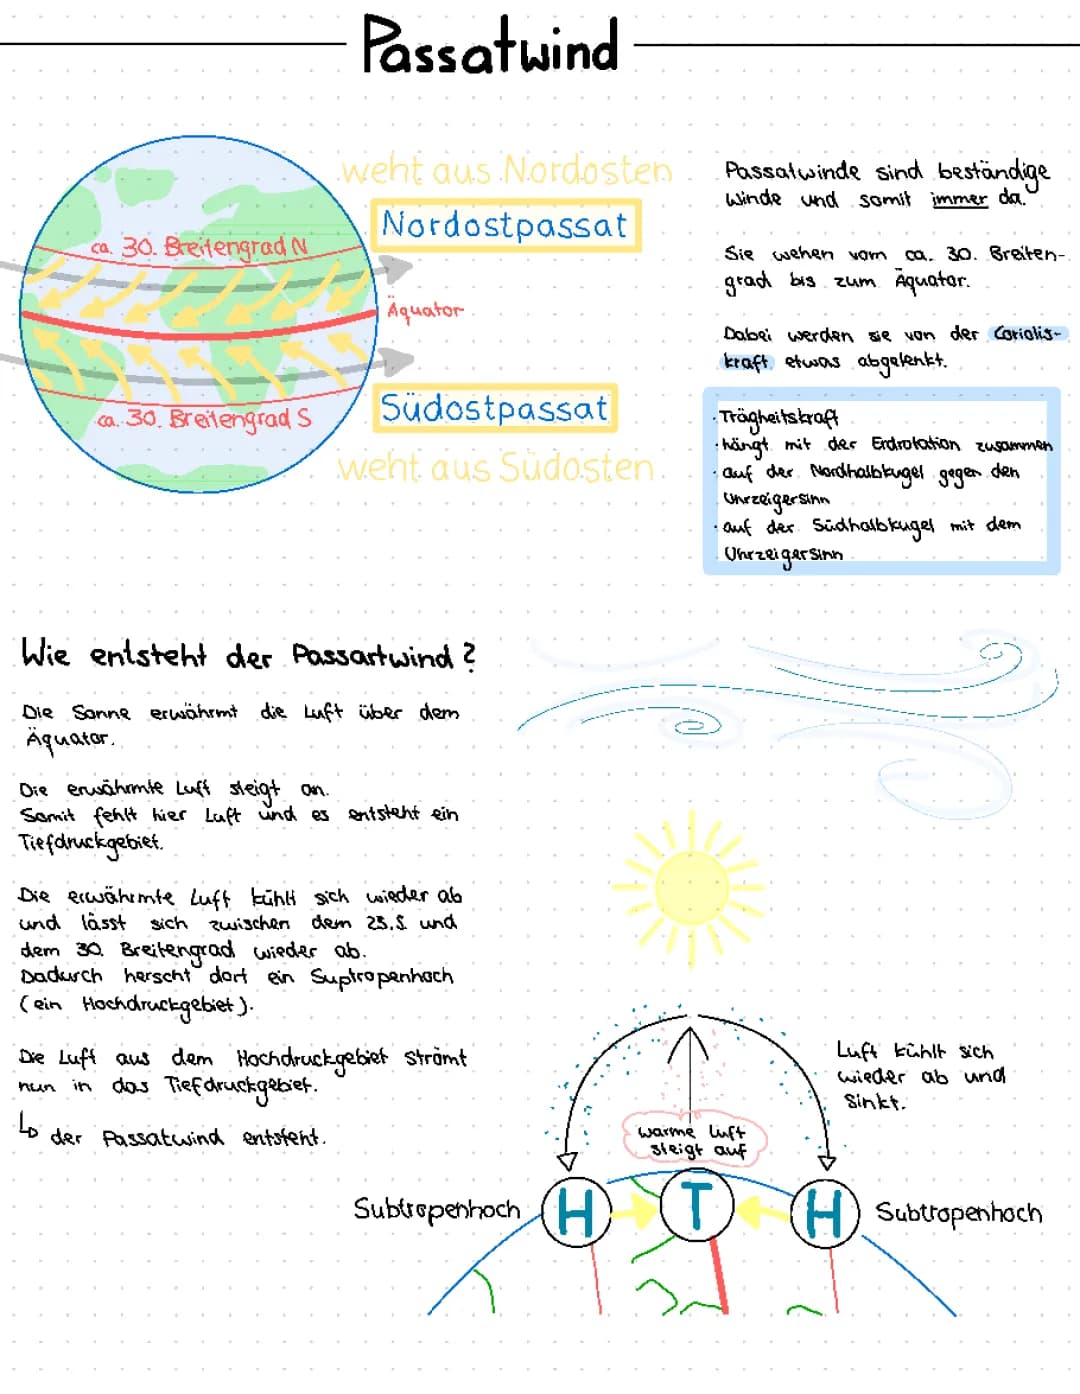 Passatwind
weht aus Nordosten
Nordostpassat
ca. 30. Breitengrad N
Äquator
ca. 30. Breitengrad S
Südostpassat
weht aus Südosten
Passatwinde sind beständige
Winde und somit immer da.
Sie wehen vom ca. 30. Breiten-
grad bis zum Äquator.
Dabei werden sie von der Coriolis-
kraft etwas abgelenkt.
· Trägheitskraft
· hängt mit der Erdrotation zusammen
· auf der Nordhalbkugel gegen den
Uhrzeigersinn
· auf der Südhalbkugel mit dem
Uhrzeigersinn
Wie entsteht der Passartwind?
Die Sonne erwährmt die Luft über dem
Äquator.
Die erwährmte Luft steigt an.
Somit fehlt hier Luft und es entsteht ein
Tiefdruckgebiet.
Die erwährmte Luft kühlt sich wieder ab
und lässt sich zwischen dem 23,5 und
dem 30. Breitengrad wieder ab.
Dadurch herscht dort ein Suptropenhoch
(ein Hochdruckgebiet).
Die Luft aus dem Hochdruckgebiet strömt
nun in das Tiefdruckgebiet.
↳ der Passatwind entsteht.
Luft kühlt sich
wieder ab und
sinkt.
warme Luft
steigt auf
Subtropenhoch H T H Subtropenhoch